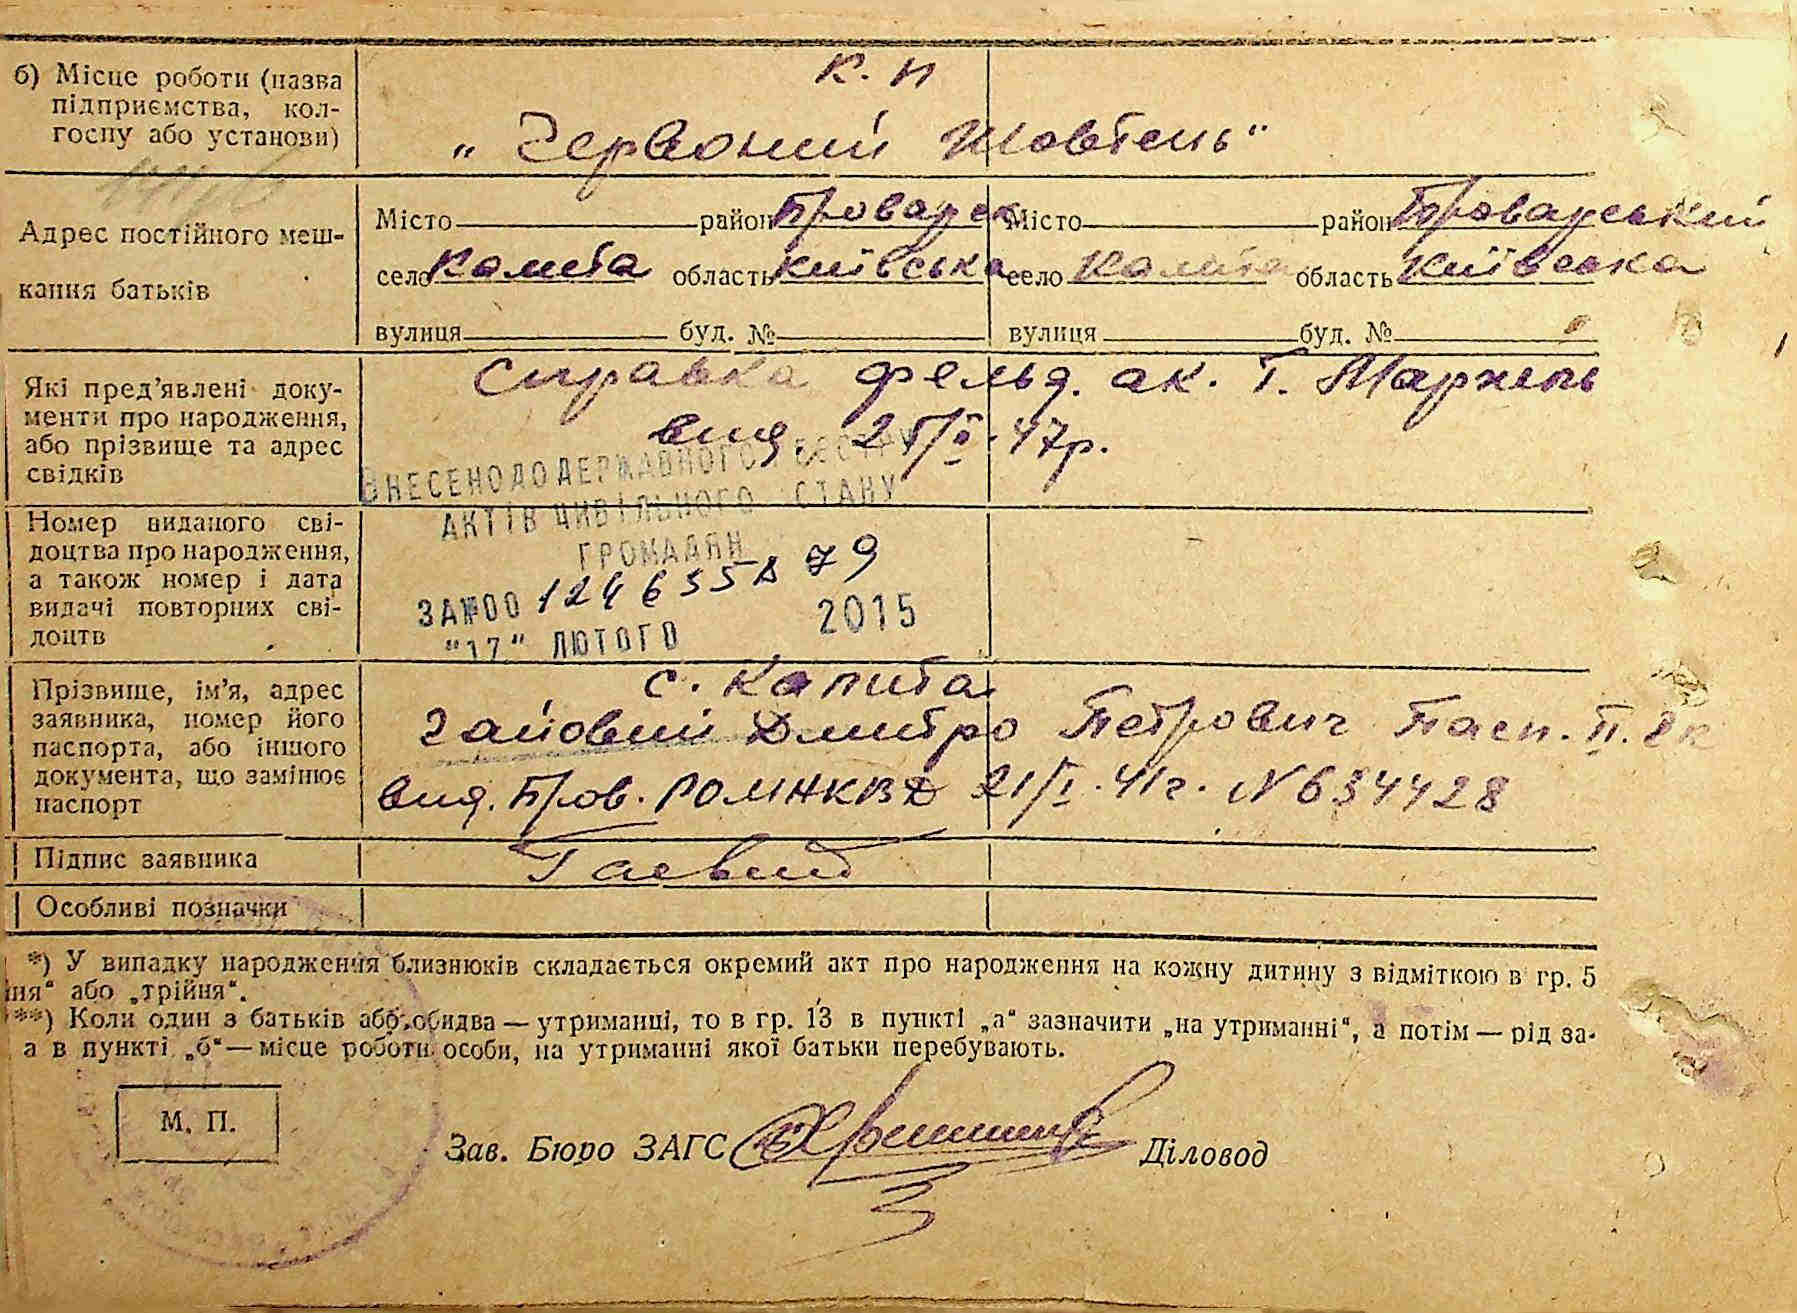 б) Місце роботи (назва
підприємства, кол-
госпу або установи)
К. п
„Червоний Жовтень"
Адрес постійного меш-
кання батьків
Місто район Броварск
село Калита область Київська
вулиця буд. №
Місто район Броварський
село Калита область Київська
вулиця буд. №
Які пред’явлені доку-
менти про народження,
або прізвище та адрес
свідків
Справка фельд. ак. Т.
вид 47р.
ВНЕСЕНО ДО ДЕРЖАВНОГО РЕЄСТРУ
АКТІВ ЦИВІЛЬНОГО СТАНУ
ГРОМАДЯН
ЗА №00 79
"17" ЛЮТОГО 2015
Номер виданого сві-
доцтва про народження,
а також номер і дата
видачі повторних сві-
доцтв
Прізвище, ім’я, адрес
заявника, номер його
паспорта, або іншого
документа, що замінює
паспорт
с. Калита
Дмитро Петрович Пасп. II.
вид. Бров. РОМНКВД 21/I. 41г. N 634428
Підпис заявника
Особливі позначки
*) У випадку народження близнюків складається окремий акт про народження на кожну дитину з відміткою в гр. 5
йня" або „трійня".
**) Коли один з батьків або обидва — утриманці, то в гр. 13 в пункті „а" зазначити „на утриманні", а потім — рід за-
а в пункті „б" — місце роботи особи, на утриманні якої батьки перебувають.
М. П.
Зав. Бюро ЗАГС Діловод